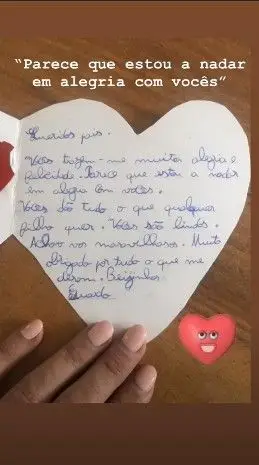 “Parece que estou a nadar
em alegria com vocês”
Queridos pais.
Voces trazem-me muita alegria e
felicidade. Parece que estou a nadar
em alegria com voces.
Voces dão tudo o que qualquer
filho quer. Voces são lindos.
Acho-vos maravilhosos. Muito
obrigado por tudo o que me
deram. Beijinhos
Eduardo